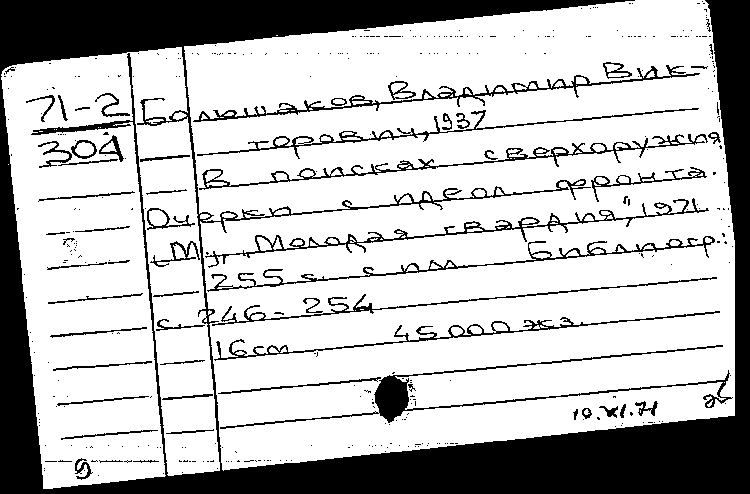 71-2
304
Большаков, Владимир Вик-
торович, 1937
В поисках сверхоружия
Очерки с идеол. фронта.
"М", "Молодая гвардия", 1971
255 с. с ил Библиогр.:
с. 246-254
16 см 45000 экз.
10.XI.71
9